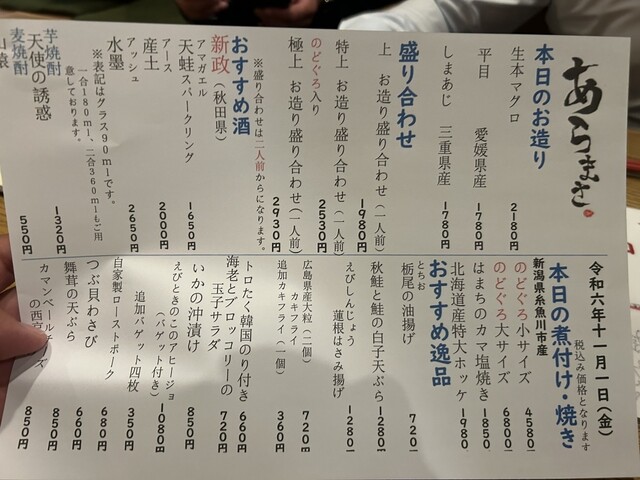 あらまさ
本日のお造り
生本マグロ 2180円
平目 愛媛県産 1780円
しまあじ 三重県産 1780円
盛り合わせ
上 お造り盛り合わせ（一人前） 1980円
特上 お造り盛り合わせ（一人前） 2530円
のどぐろ入り
極上 お造り盛り合わせ（一人前） 2930円
※盛り合わせは二人前からになります。
おすすめ酒
新政（秋田県）
アマガエル
天蛙スパークリング 1650円
アース
産土 2000円
アッシュ
水墨 2650円
※表記はグラス90mlです。
一合180ml、二合360mlもご用
意しております。
芋焼酎
天使の誘惑 1320円
麦焼酎
550円
令和六年十一月一日（金）
税込み価格となります
本日の煮付け・焼き
新潟県糸魚川市産
のどぐろ小サイズ 4580
のどぐろ大サイズ 6800
はまちのカマ塩焼き 1850
北海道産特大ホッケ 1980
おすすめ逸品
とちお
栃尾の油揚げ 720
秋鮭と鮭の白子天ぷら 1280
えびしんじょう
蓮根はさみ揚げ 1280
広島県産大粒（二個）
カキフライ 720
追加カキフライ（一個） 360円
トロたく韓国のり付き 660円
海老とブロッコリーの
玉子サラダ 720円
いかの沖漬け 850円
えびときのこのアヒージョ
（バゲット付き） 1080円
追加バゲット四枚 350円
自家製ローストポーク 680円
つぶ貝わさび 660円
舞茸の天ぷら 850円
カマンベールチーズ
の西京 850円